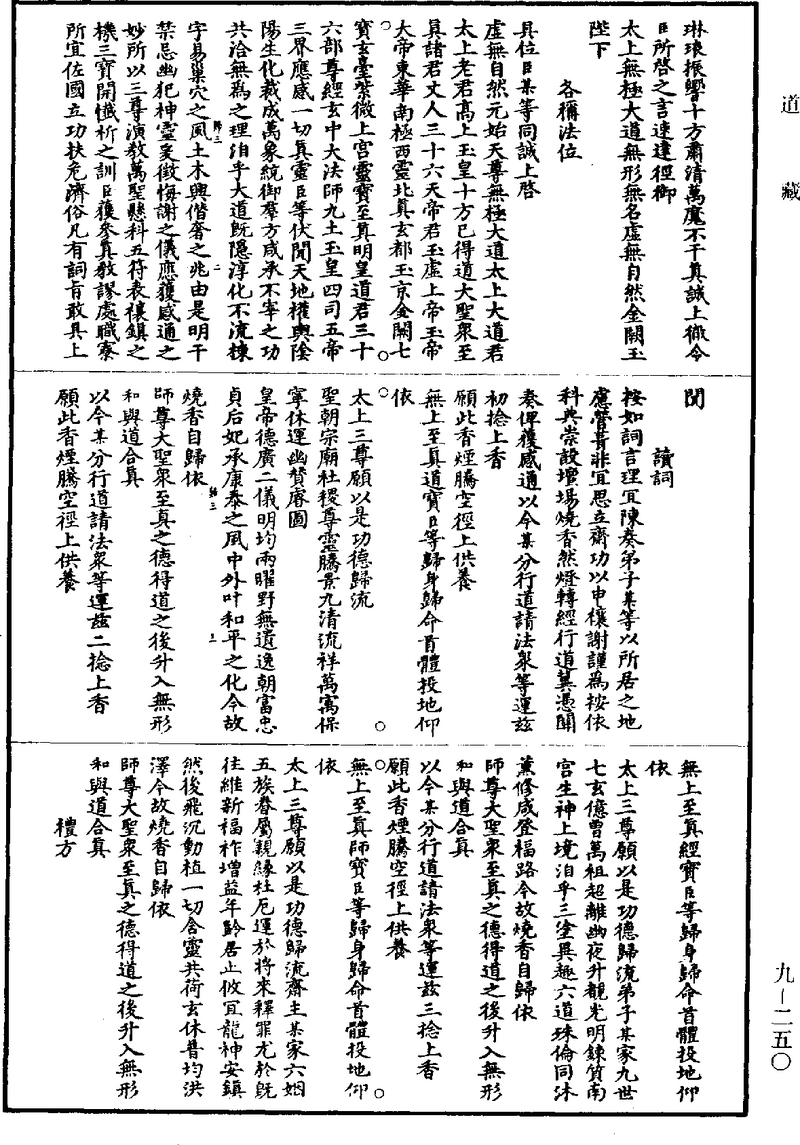 道藏
琳琅振響十方肅清萬魔不干真誠上徹令
臣所啓之言速達徑御
太上無極大道無形無名虛無自然金闕玉
陛下
各稱法位
具位臣某等同誠上啓
虛無自然元始天尊無極大道太上大道君
太上老君高上玉皇十方已得道大聖衆至
真諸君丈人三十六天帝君玉虛上帝玉帝
大帝東華南極西靈北真玄都玉京金闕七
寶玄臺紫微上宮靈寶至真明皇道君三十
六部尊經玄中大法師九土玉皇四司五帝
三界應感一切真靈臣等伏聞天地權輿陰
陽生化裁成萬象統御羣方咸承不宰之功
共洽無爲之理洎乎大道既隱淳化不流棟
宇易巢穴之風土木興僭奢之兆由是明干
禁忌幽犯神靈爰徵悔謝之儀應獲感通之
妙所以三尊演敎萬聖懸科五符表禳鎮之
機三寶開懺祈之訓臣獲參真敎謬處職寮
所宜佐國立功扶危濟俗凡有詞旨敢具上
聞
讀詞
按如詞言理宜陳奏弟子某等以所居之地
慮營葺非宜思立齋功以申禳謝謹爲按依
科典崇設壇場燒香然燈轉經行道冀憑聞
奏俾獲感通以今某分行道請法衆等運茲
初捻上香
願此香煙騰空徑上供養
無上至真道寶臣等歸身歸命首體投地仰
依
太上三尊願以是功德歸流
聖朝宗廟社稷尊靈騰景九清流祥萬寓保
寧休運幽贊睿圖
皇帝德廣二儀明均兩曜野無遺逸朝富忠
貞后妃承康泰之風中外叶和平之化今故
燒香自歸依
師尊大聖衆至真之德得道之後升入無形
和與道合真
以今某分行道請法衆等運茲二捻上香
願此香煙騰空徑上供養
無上至真經寶臣等歸身歸命首體投地仰
依
太上三尊願以是功德歸流弟子某家九世
七玄億曾萬祖超離幽夜升觀光明鍊質南
宮生神上境洎乎三塗異趣六道殊倫同沐
薰修咸登福路今故燒香自歸依
師尊大聖衆至真之德得道之後升入無形
和與道合真
以今某分行道請法衆等運茲三捻上香
願此香煙騰空徑上供養
無上至真師寶臣等歸身歸命首體投地仰
依
太上三尊願以是功德歸流齋主某家六姻
五族眷屬親緣杜厄運於將來釋罪尤於既
往維新福祚增益年齡居止攸宜龍神安鎮
然後飛沉動植一切含靈共荷玄休普均洪
澤今故燒香自歸依
師尊大聖衆至真之德得道之後升入無形
和與道合真
禮方
九－二五〇